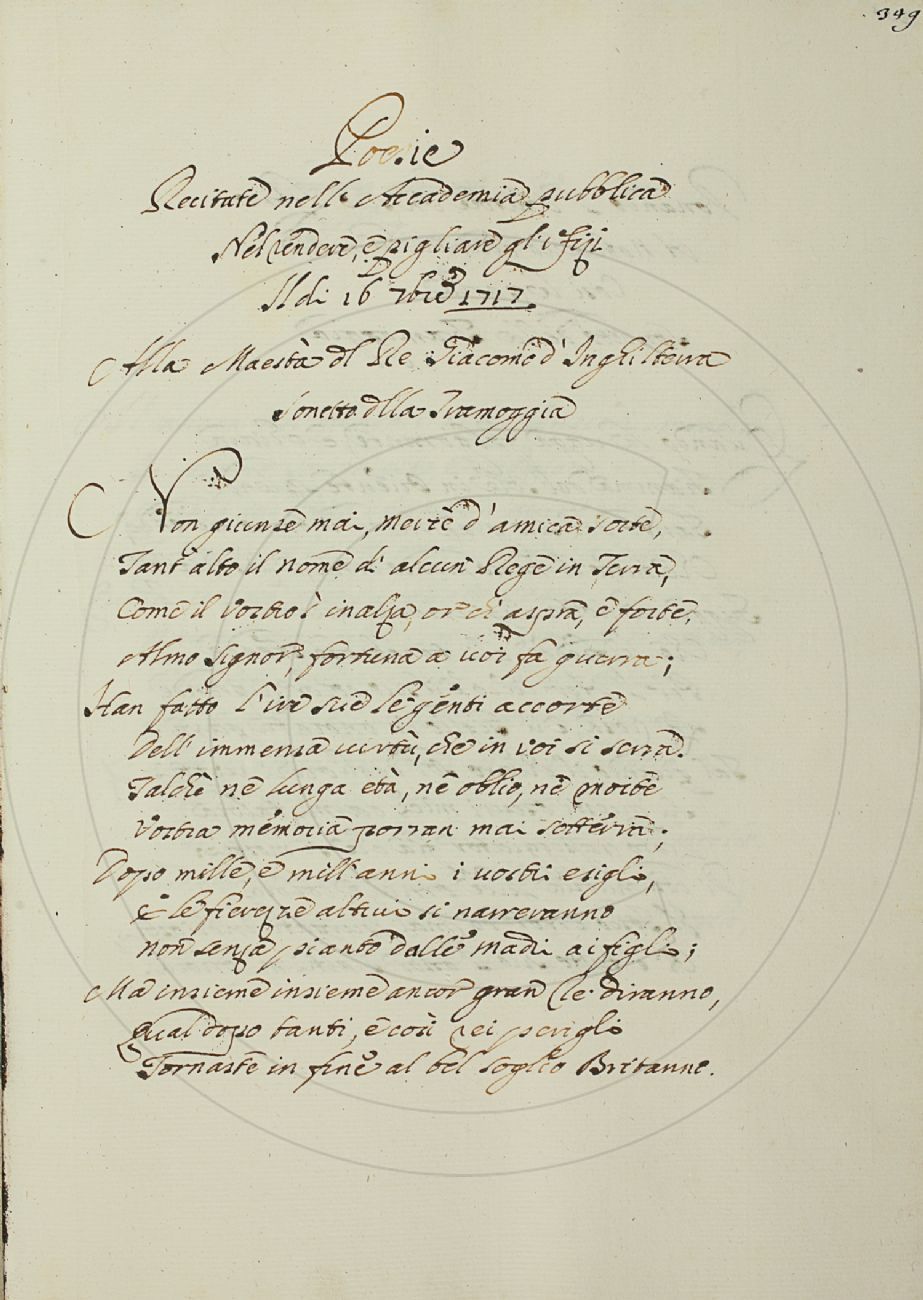 349
Poesie
Recitate nell' Accademia pubblica
Nel rendere, e pigliare gl'i Fiji
Il di 16 7bre 1717.
Alla Maestà dl Re Giacomo d' Inghilterra
Sonetto dlla Tramoggia
Non giunse mai, mercè d' amica sorte,
Tant' alto il nome di alcun Rege in Terra,
Come il vostro s' inalza, or ch' aspra, e forte,
Almo Signor, fortuna a voi fa guerra;
Han fatto l' ire sue le genti accorte
Dell' immensa virtù, che in voi si serra.
Talchè nè lunga età, nè oblio, nè morte
Vostra memoria porran mai sotterra.
Dopo mille, e mill' anni i vostri esigli,
E le fierezze altrui si narreranno
non senza pianto dalle madri ai figli;
Ma insieme insieme ancor gran Re diranno,
Qual dopo tanti, e così rei perigli
Tornaste in fine al bel soglio Britanno.